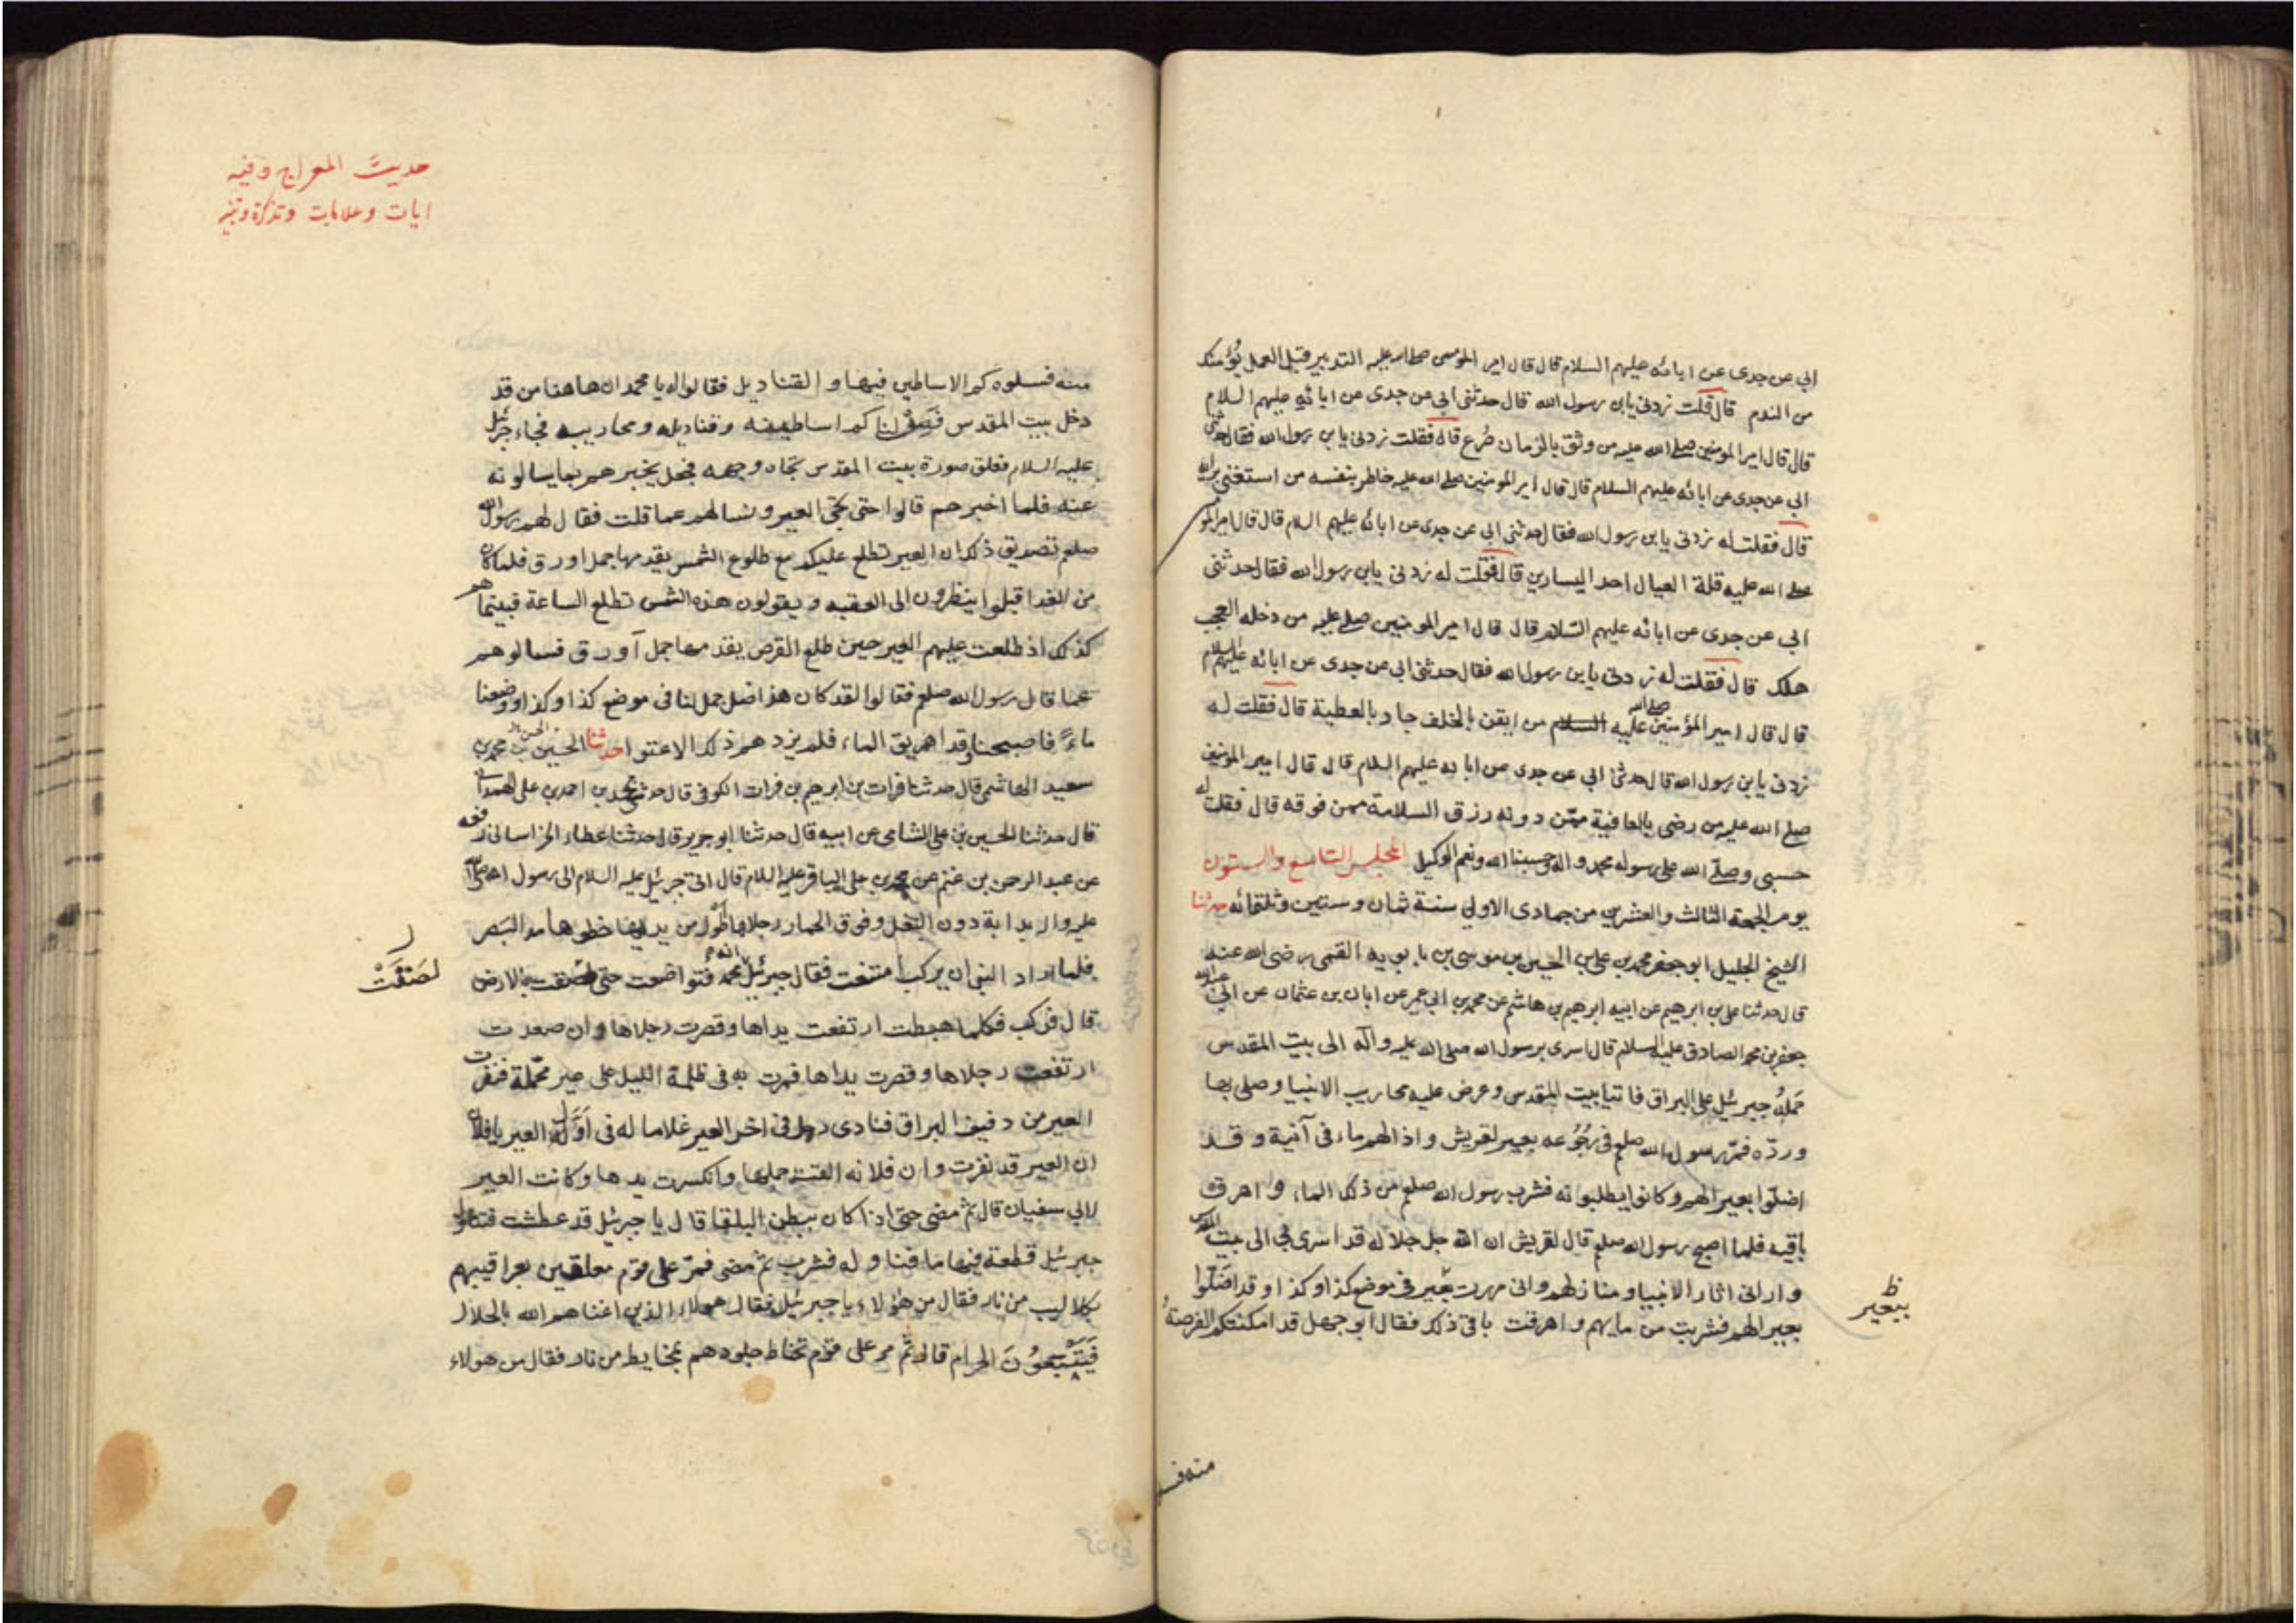 ابي عن جدى عن ابائه عليهم السلام قال قال امير التدبير قبل العمل يؤمنك
من الندم قال قلت زدنى يابن رسول الله قال حدثنى ابى عن جدى عن ابائه عليهم السلام
قال قال امير المومنين صلى الله عليه من وثق بالزمان صُرع قال فقلت زدنى يابن رسول الله فقال حدثنى
ابى عن جدى عن ابائه عليهم السلام قال قال امير المومنين صلى الله عليه خاطر بنفسه من استغنى برايه
قال فقلت له زدنى يابن رسول الله فقال حدثنى ابى عن جدى عن ابائه عليهم السلام قال قال امير المو
صلى الله عليه قلة العيال احد اليسارين قال فقلت له زدنى يابن رسول الله فقال حدثنى
ابى عن جدى عن ابائه عليهم السّلام قال قال امير المومنين صلى عليه من دخله العجب
هلك قال فقلت له زدنى يابن رسول الله فقال حدثنى ابى عن جدى عن ابائه عليهم السلام
قال قال امير المؤمنين صلى الله عليه السلام من ايقن بالخلف جاد بالعطية قال فقلت له
زدنى يابن رسول الله قال حدثنى ابى عن جدى عن ابايه عليهم السلام قال قال امير المومنين
صلى الله عليه من رضى بالعافية ممّن دونه رزق السلامة ممن فوقه قال فقلت له
حسبى وصلّى الله على رسوله محمد واله وحسبنا الله ونعم الوكيل المجلس التاسع والستون
يوم الجمعة الثالث والعشرين من جمادى الاولى سنة ثمان وستين وثلثمائه حدثنا
الشيخ الجليل ابو جعفر محمد بن على بن الحسين بن موسى بن بابويه القمى رضى الله عنه
قال حدثنا على بن ابرهيم عن ابيه ابرهيم بن هاشم عن محمد بن ابى عمير عن ابان بن عثمان عن ابى عبد الله
جعفر بن محمد الصادق عليه السلام قال اسرى برسول الله صلى الله عليه وآله الى بيت المقدس
حَمَلَهُ جبرئيل على البراق فاتيا بيت المقدس وعرض عليه محاريب الانبيا وصلى بها
وردّه فمرّ رسول الله صلعم فى رُجُوعه بعير لقريش واذا لهم ماء فى آنية وقد
اضلّوا بعيرا لهم وكانوا يطلبونه فشرب رسول الله صلعم من ذلك الماء واهرق
باقيه فلما اصبح رسول الله صلعم قال لقريش ان الله جل جلاله قد اسرى بى الى بيت المقدس
وارانى اثار الانبيا ومنازلهم وانى مررت بعير فى موضع كذا وكذا وقد اضلّوا
بعيرا لهم فشربت من مايهم واهرقت باقى ذلك فقال ابو جهل قد امكنتكم الفرصةُ
ظ
ببعير
منه فسلوه
حديث المعراج وفيه
ايات وعلامات وتذكرة وتنبيه
منه فسلوه كم الاساطين فيها والقناديل فقالوا له يا محمد ان هاهنا من قد
دخل بيت المقدس فَصِفْ لنا كم اساطينه وقناديله ومحاريبه فجاء جبرئيل
عليه السلام فعلق صورة بيت المقدس تجاه وجهه فجعل يخبرهم بما يسالونه
عنه فلما اخبرهم قالوا حتى تجئ العير ونسالهم عما قلت فقال لهم رسول الله
صلعم تصديق ذلك ان العير تطلع عليكم مع طلوع الشمس يقدمها جمل اورق فلما كان
من الغد اقبلوا ينظرون الى العقبه ويقولون هذه الشمس تطلع الساعة فبينما هم
كذلك اذ طلعت عليهم العير حين طلع القرص يقدمها جمل آورق فسالوهم
عما قال رسول الله صلعم فقالوا لقد كان هذا ضل جمل لنا فى موضع كذا وكذا ووضعنا
ماءً فاصبحنا وقد اهريق الماء فلم يزدهم ذلك الا عتوا حدثنا الحسين بن محمد بن
سعيد الهاشمى قال حدثنا فرات بن ابرهيم بن فرات الكوفى قال حدثنا محمد بن احمد بن على الهمدانى
قال حدثنا الحسين بن على الشامى عن ابيه قال حدثنا ابو جرير قال حدثنا عطاء الخراسانى رفعه
عن عبد الرحمن بن غنم عن محمد بن على الباقر عليه السلام قال اتى جبرئيل عليه السلام الى رسول الله صلى الله
عليه واله بدابة دون البغل وفوق الحمار رجلاها اطول من يديها خطوها مد البَصر
فلما اراد النبى ان يركب امتنعت فقال جبرئيل انه محمد فتواضعت حتى لصقت بالارض
لَصَقَتْ
قال فركب فكلما هبطت ارتفعت يداها وقصرت رجلاها وان صعدت
ارتفعت رجلاها وقصرت يداها فمرت به فى ظلمة الليل على عير محمّلة فنفرت
العير من دفيف البراق فنادى رجل فى اخر العير غلاما له فى اوّل العير يا فلان
ان العير قد نفرت وان فلانه القت حملها وانكسرت يدها وكانت العير
لابى سفيان قال ثم مضى حتى اذا كان ببطن البلقا قال يا جبرئيل قد عطشت فتناول
جبرئيل قطعة فيها ما فناوله فشرب ثم مضى فمرّ على قوم معلقين بعراقيبهم
بكلاليب من نار فقال من هؤلاء يا جبرئيل فقال هولاء الذين اغناهم الله بالحلال
فَيَتَّبِعُونَ الحرام قال ثم مر على قوم تخاط جلودهم بمخايط من نار فقال من هولاء